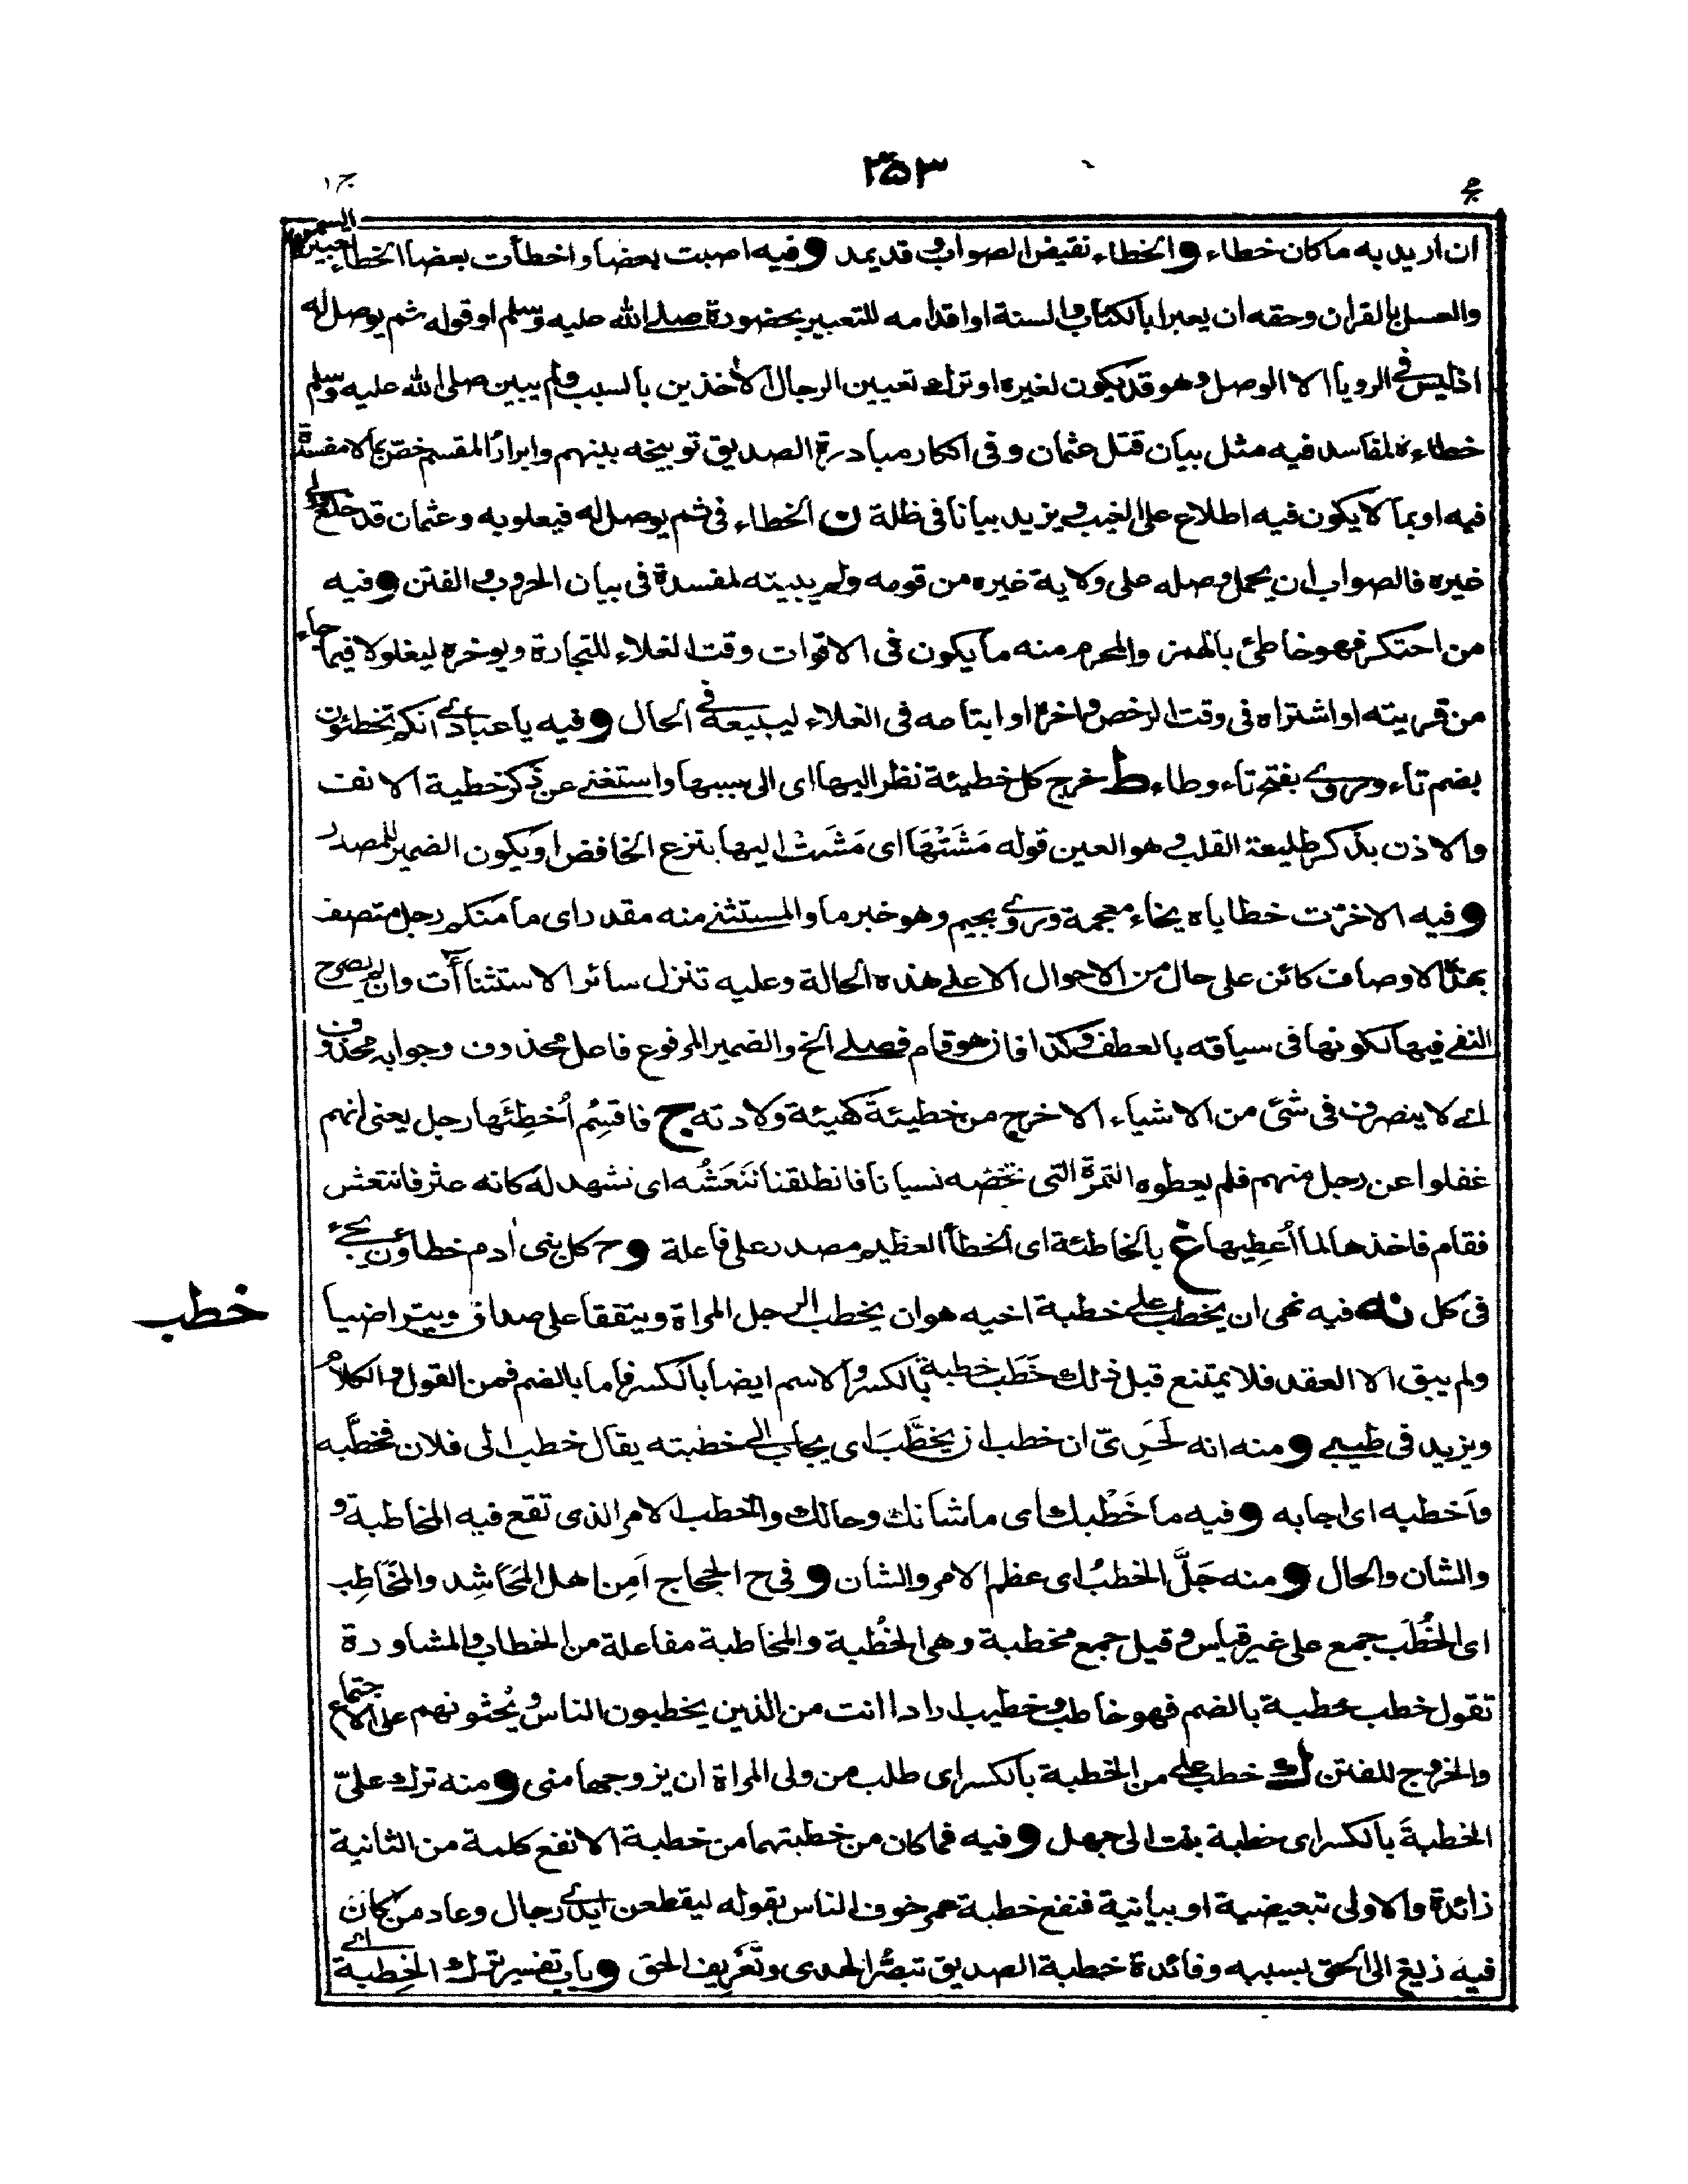 ٣٥٣
ج ١
ان اريد به ما كان خطاء و الخطاء نقيض الصواب و قد يمد و فيه اصبت بعضا و اخطأت بعضا الخطاء تعبير السمن
والعسل بالقران وحقه ان يعبرا بالكتاب والسنة او اقدامه للتعبير بحضورة صلى الله عليه وسلم او قوله ثم يوصل له
اذ ليس فى الرويا الا الوصل وهو قد يكون لغيره او ترك تعيين الرجال الأخذين بالسبب ولم يبين صلى الله عليه وسلم
خطاءه لمفاسد فيه مثل بيان قتل عثمان و فى انكار مبادرة الصديق توبيخه بينهم وابرار المقسم خص بما لا مفسدة
فيه او بما لا يكون فيه اطلاع على الغيب و يزيد بيانا فى ظلة ن الخطاء فى ثم يوصل له فيعلو به و عثمان قد خلع ولى
غيره فالصواب ان يحمل وصله على ولاية غيره من قومه ولم يبينه لمفسدة فى بيان الحروب و الفتن و فيه
من احتكر فهو خاطئ بالهمز والمحرم منه ما يكون فى الاقوات وقت الغلاء للتجارة ويوخره ليغلو لا فيما جاء
من قريته او اشتراه فى وقت الرخص واخره او ابتاعه فى الغلاء ليبيعه فى الحال و فيه يا عبادى انكم تخطئون
بضم تاء وروى بفتح تاء وطاء ط خرج كل خطيئة نظر اليها اى الى سببها واستغنى عن ذكر خطية الانف
والاذن بذكر طليعة القلب و هو العين قوله مَشَتْهَا اى مَشَتْ اليها بنزع الخافض او يكون الضمير للمصدر
و فيه الاخرّت خطاياه بخاء معجمة وروى بجيم وهو خبر ما والمستثنى منه مقدر اى ما منكم رجل متصف
بهذه الاوصاف كائن على حال من الاحوال الا على هذه الحالة وعليه تنزل سائر الاستثناأت وان لم يصرح
النفى فيها لكونها فى سياقه بالعطف وكذا فان هو قام فصلى الخ والضمير المرفوع فاعل محذوف وجوابه محذوف
اى لا ينصرف فى شئ من الاشياء الا خرج من خطيئة كهيئة ولادته ج فاقسِمُ اُخطِئَها رجل يعنى انهم
غفلوا عن رجل منهم فلم يعطوه التمرة التى تخصه نسيانا فانطلقنا نَنعَشُه اى نشهد له كانه عثر فانتعش
فقام فاخذها لما اُعطِيها غ بالخاطئة اى الخطأ العظيم مصدر على فاعلة و ح كل بنى أدم خطاؤن يجىء
فى كل نه فيه نهى ان يخطب على خطبة اخيه هو ان يخطب الرجل المراة و يتفقا على صداق ويتراضيا
خطب
ولم يبق الا العقد فلا يمتنع قبل ذلك خَطَب خطبة بالكسر والاسم ايضا بالكسر فأما بالضم فمن القول والكلام
ويزيد فى طيبى و منه انه لَحَرِىّ ان خطب ان يخطَّبَ اى يجاب الى خطبته يقال خطب الى فلان فخطّبه
وأخطبه اى اجابه و فيه ما خَطْبك اى ما شانك وحالك والخطب الامر الذى تقع فيه المخاطبة و
والشان والحال و منه جَلَّ الخطبُ اى عظم الامر والشان و فى ح الحجاج اَمِن اهل المَحَاشِد والمَخَاطِب
اى الخُطَب جمع على غير قياس و قيل جمع مخطبة وهى الخُطْبة والمخاطبة مفاعلة من الخطاب والمشاورة
تقول خطب خطبة بالضم فهو خاطب و خطيب اراد اانت من الذين يخطبون الناس و يُحثونهم على الاجتماع
والخروج للفتن ك خطب على من الخطبة بالكسر اى طلب من ولى المراة ان يزوجها منى و منه ترك علىّ
الخطبةَ بالكسر اى خطبة بنت ابى جهل و فيه فما كان من خطبتهما من خطبة الا نفع كلمة من الثانية
زائدة والاولى تبعيضية او بيانية فنفع خطبة عمر خوف الناس بقوله ليقطعن ايدى رجال وعاد من كان
فيه زيغ الى الحق بسببه وفائدة خطبة الصديق تبصُّر الهدى و تعريف الحق و باب تفسير ترك الخِطبة اى